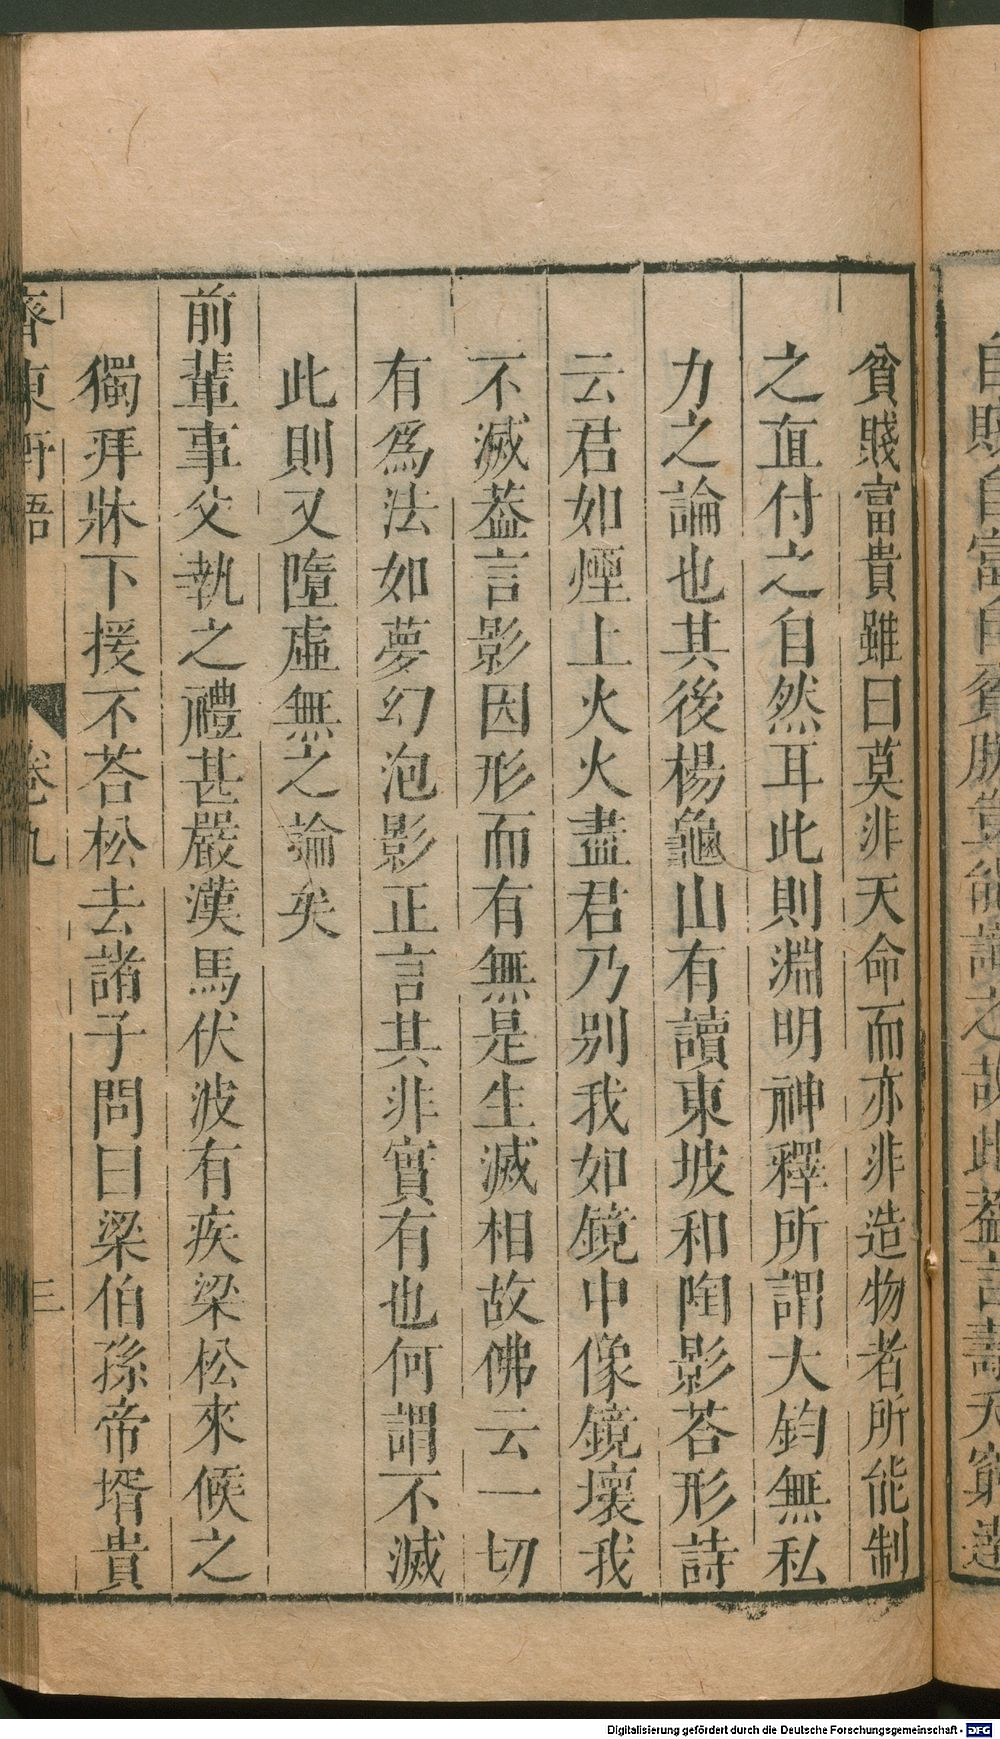 自賤自富自貧勝豈能識之故此葢言壽天窮達
貧賤富貴雖曰莫非天命而亦非造物者所能制
之直付之自然耳此則淵明神釋所謂大鈞無私
力之論也其後楊龜山有讀東坡和陶影荅形詩
云君如煙上火火盡君乃别我如鏡中像鏡壞我
不滅葢言影因形而有無是生滅相故佛云一切
有爲法如夢幻泡影正言其非實有也何謂不滅
此則又墮虛無之論矣
前輩事父執之禮甚嚴漢馬伏波有疾梁松來候之
獨拜牀下援不荅松去諸子問曰梁伯孫帝壻貴
齊東野語 卷九 三
Digitalisierung gefördert durch die Deutsche Forschungsgemeinschaft - DFG